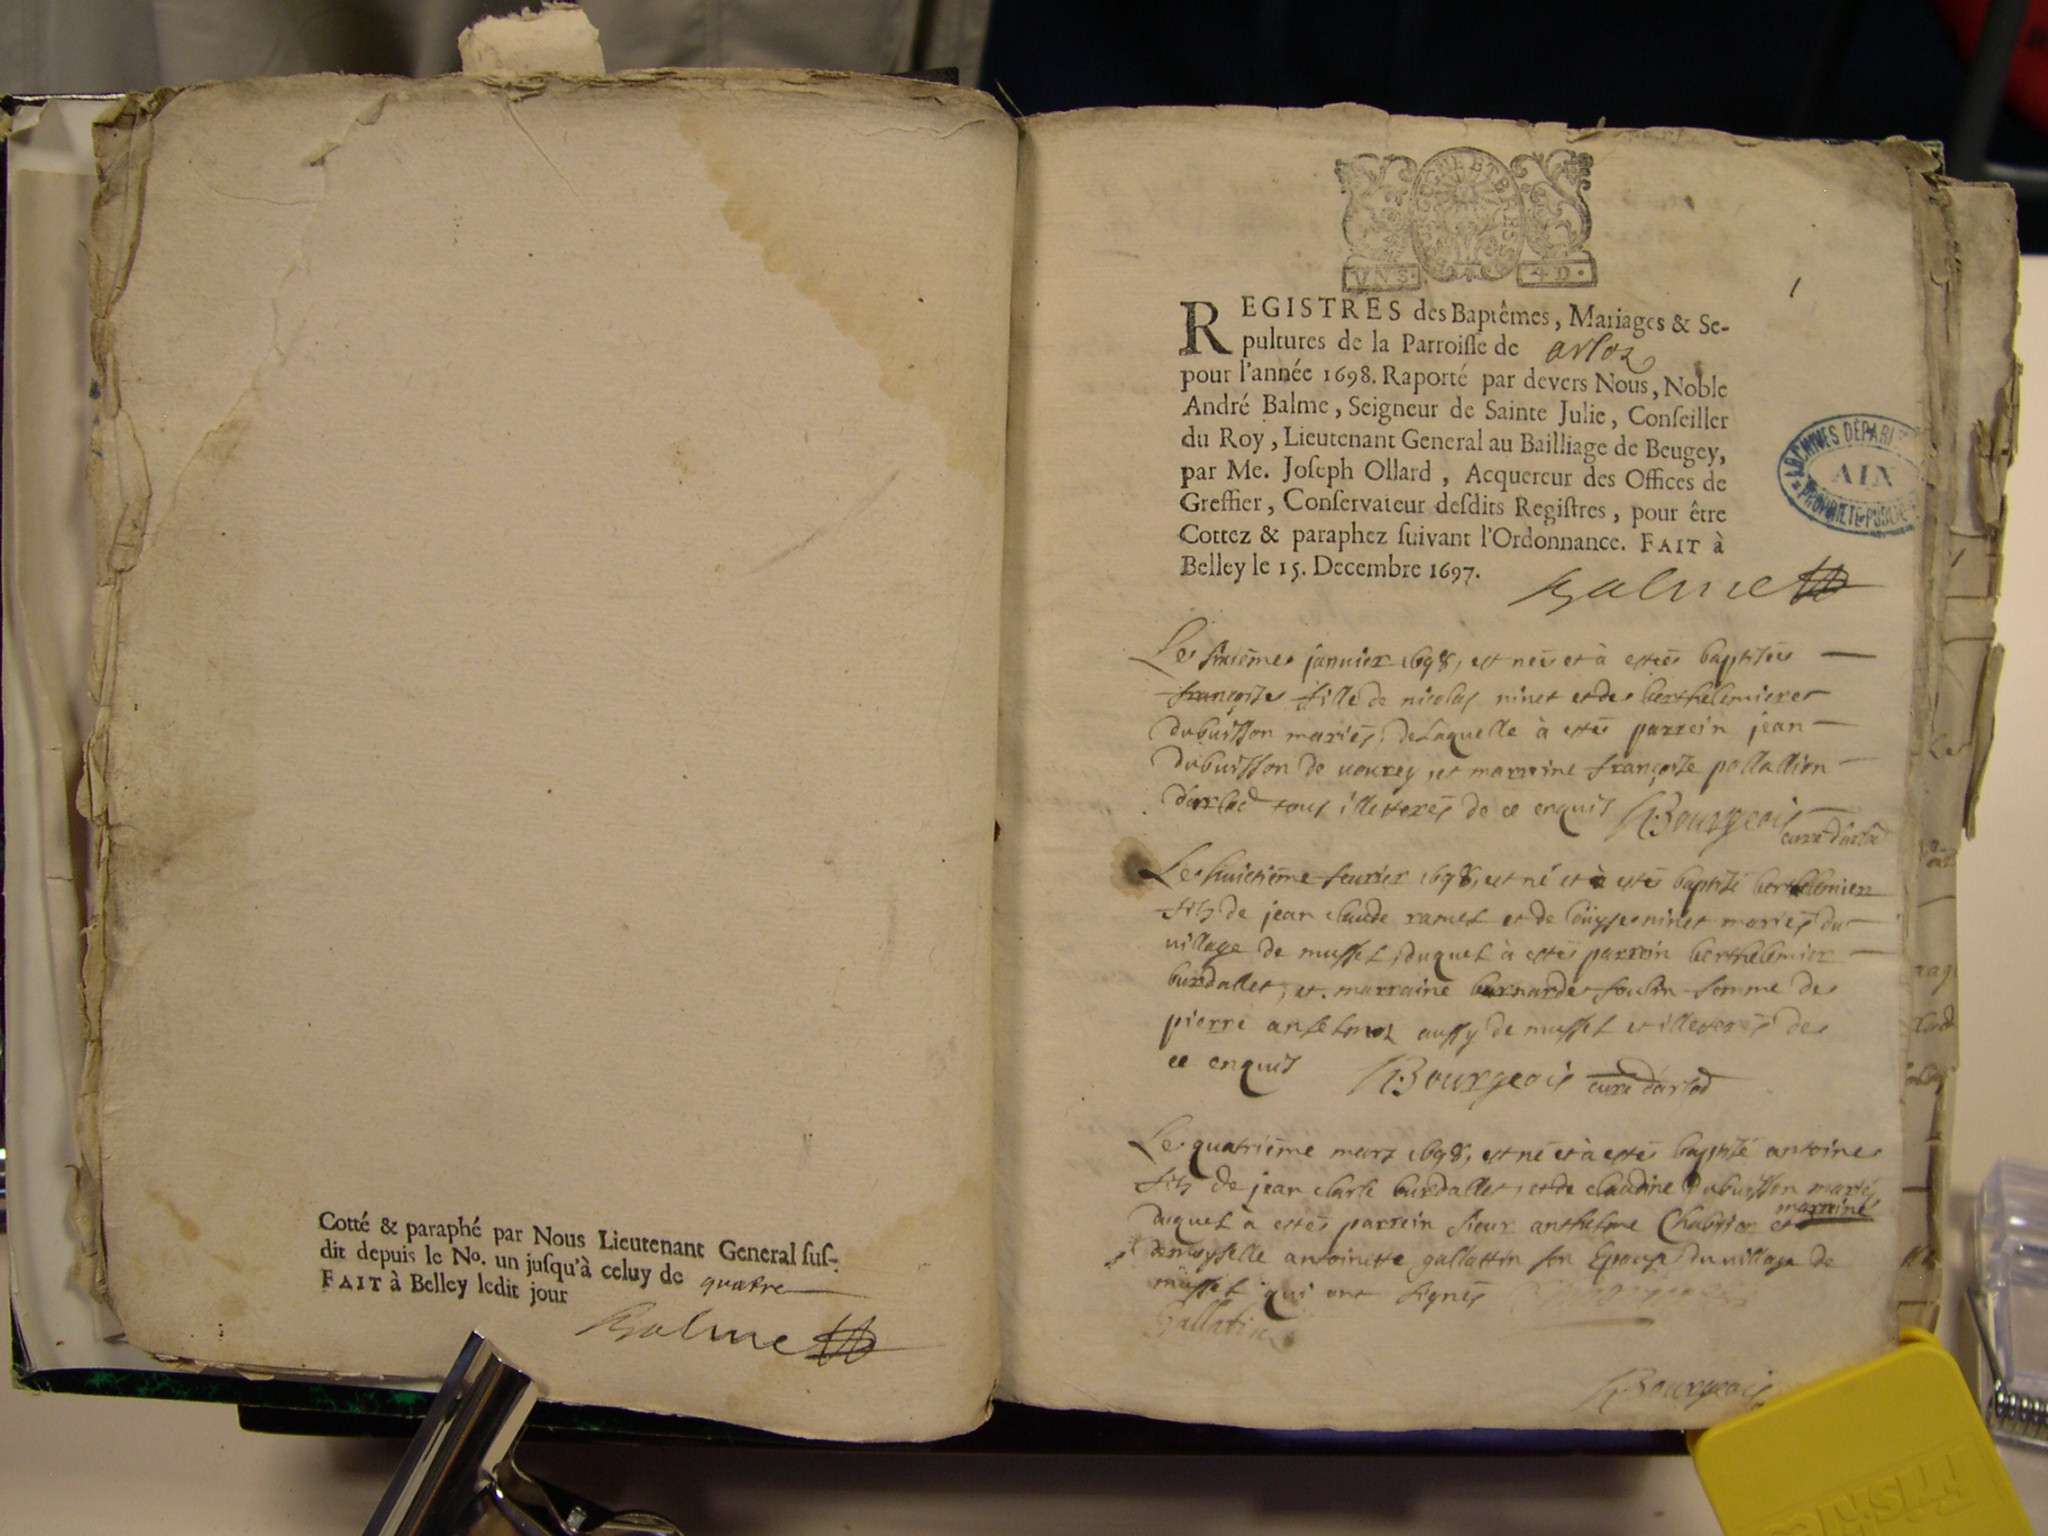 Cotté & paraphé par Nous Lieutenant General sus-
dit depuis le No. un jusqu'à celuy de quatre
FAIT à Belley ledit jour
Balme
VNS. 4 D.
1
REGISTRES des Baptêmes, Mariages & Se-
pultures de la Parroisse de arloz
pour l'année 1698. Raporté par devers Nous, Noble
André Balme, Seigneur de Sainte Julie, Conseiller
du Roy, Lieutenant General au Bailliage de Beugey,
par Me. Joseph Ollard, Acquereur des Offices de
Greffier, Conservateur desdits Registres, pour être
Cottez & paraphez suivant l'Ordonnance. FAIT à
Belley le 15. Decembre 1697.
Balme
ARCHIVES DÉPART
AIN
PROPRIÉTÉ PUBLIC
Le sixième janvier 1698, est neë et à esteë baptiseë
françoise fille de nicolas ninet et de berthelemiere
dubuisson mariés, de laquelle à estés parrein jean
dubuisson de vourey, et marrine françoise pallallion
d'arlod tous illetterés de ce enquis Bourgeois
curé d'arlod
Le huictième feurier 1698, est né et à estés baptisé berthelemier
fils de jean claude ramel et de loüyse ninet mariés du
village de mussel, duquel à estés parrein berthelemier
burdallet, et marraine bernarde foulin femme de
pierre anselmoz aussy de mussel et illeterés de
ce enquis Bourgeois curé d'arlod
Le quatrième mars 1698, est né et à estés baptisé antoine
fils de jean charle burdallet, et de claudine dubuisson mariés
duquel à estés parrein sieur anthelme Chabrier et marrine
demoyselle antoinette gallattin son Epouse du village de
mussel qui ont signés
Gallatin
Bourgeois